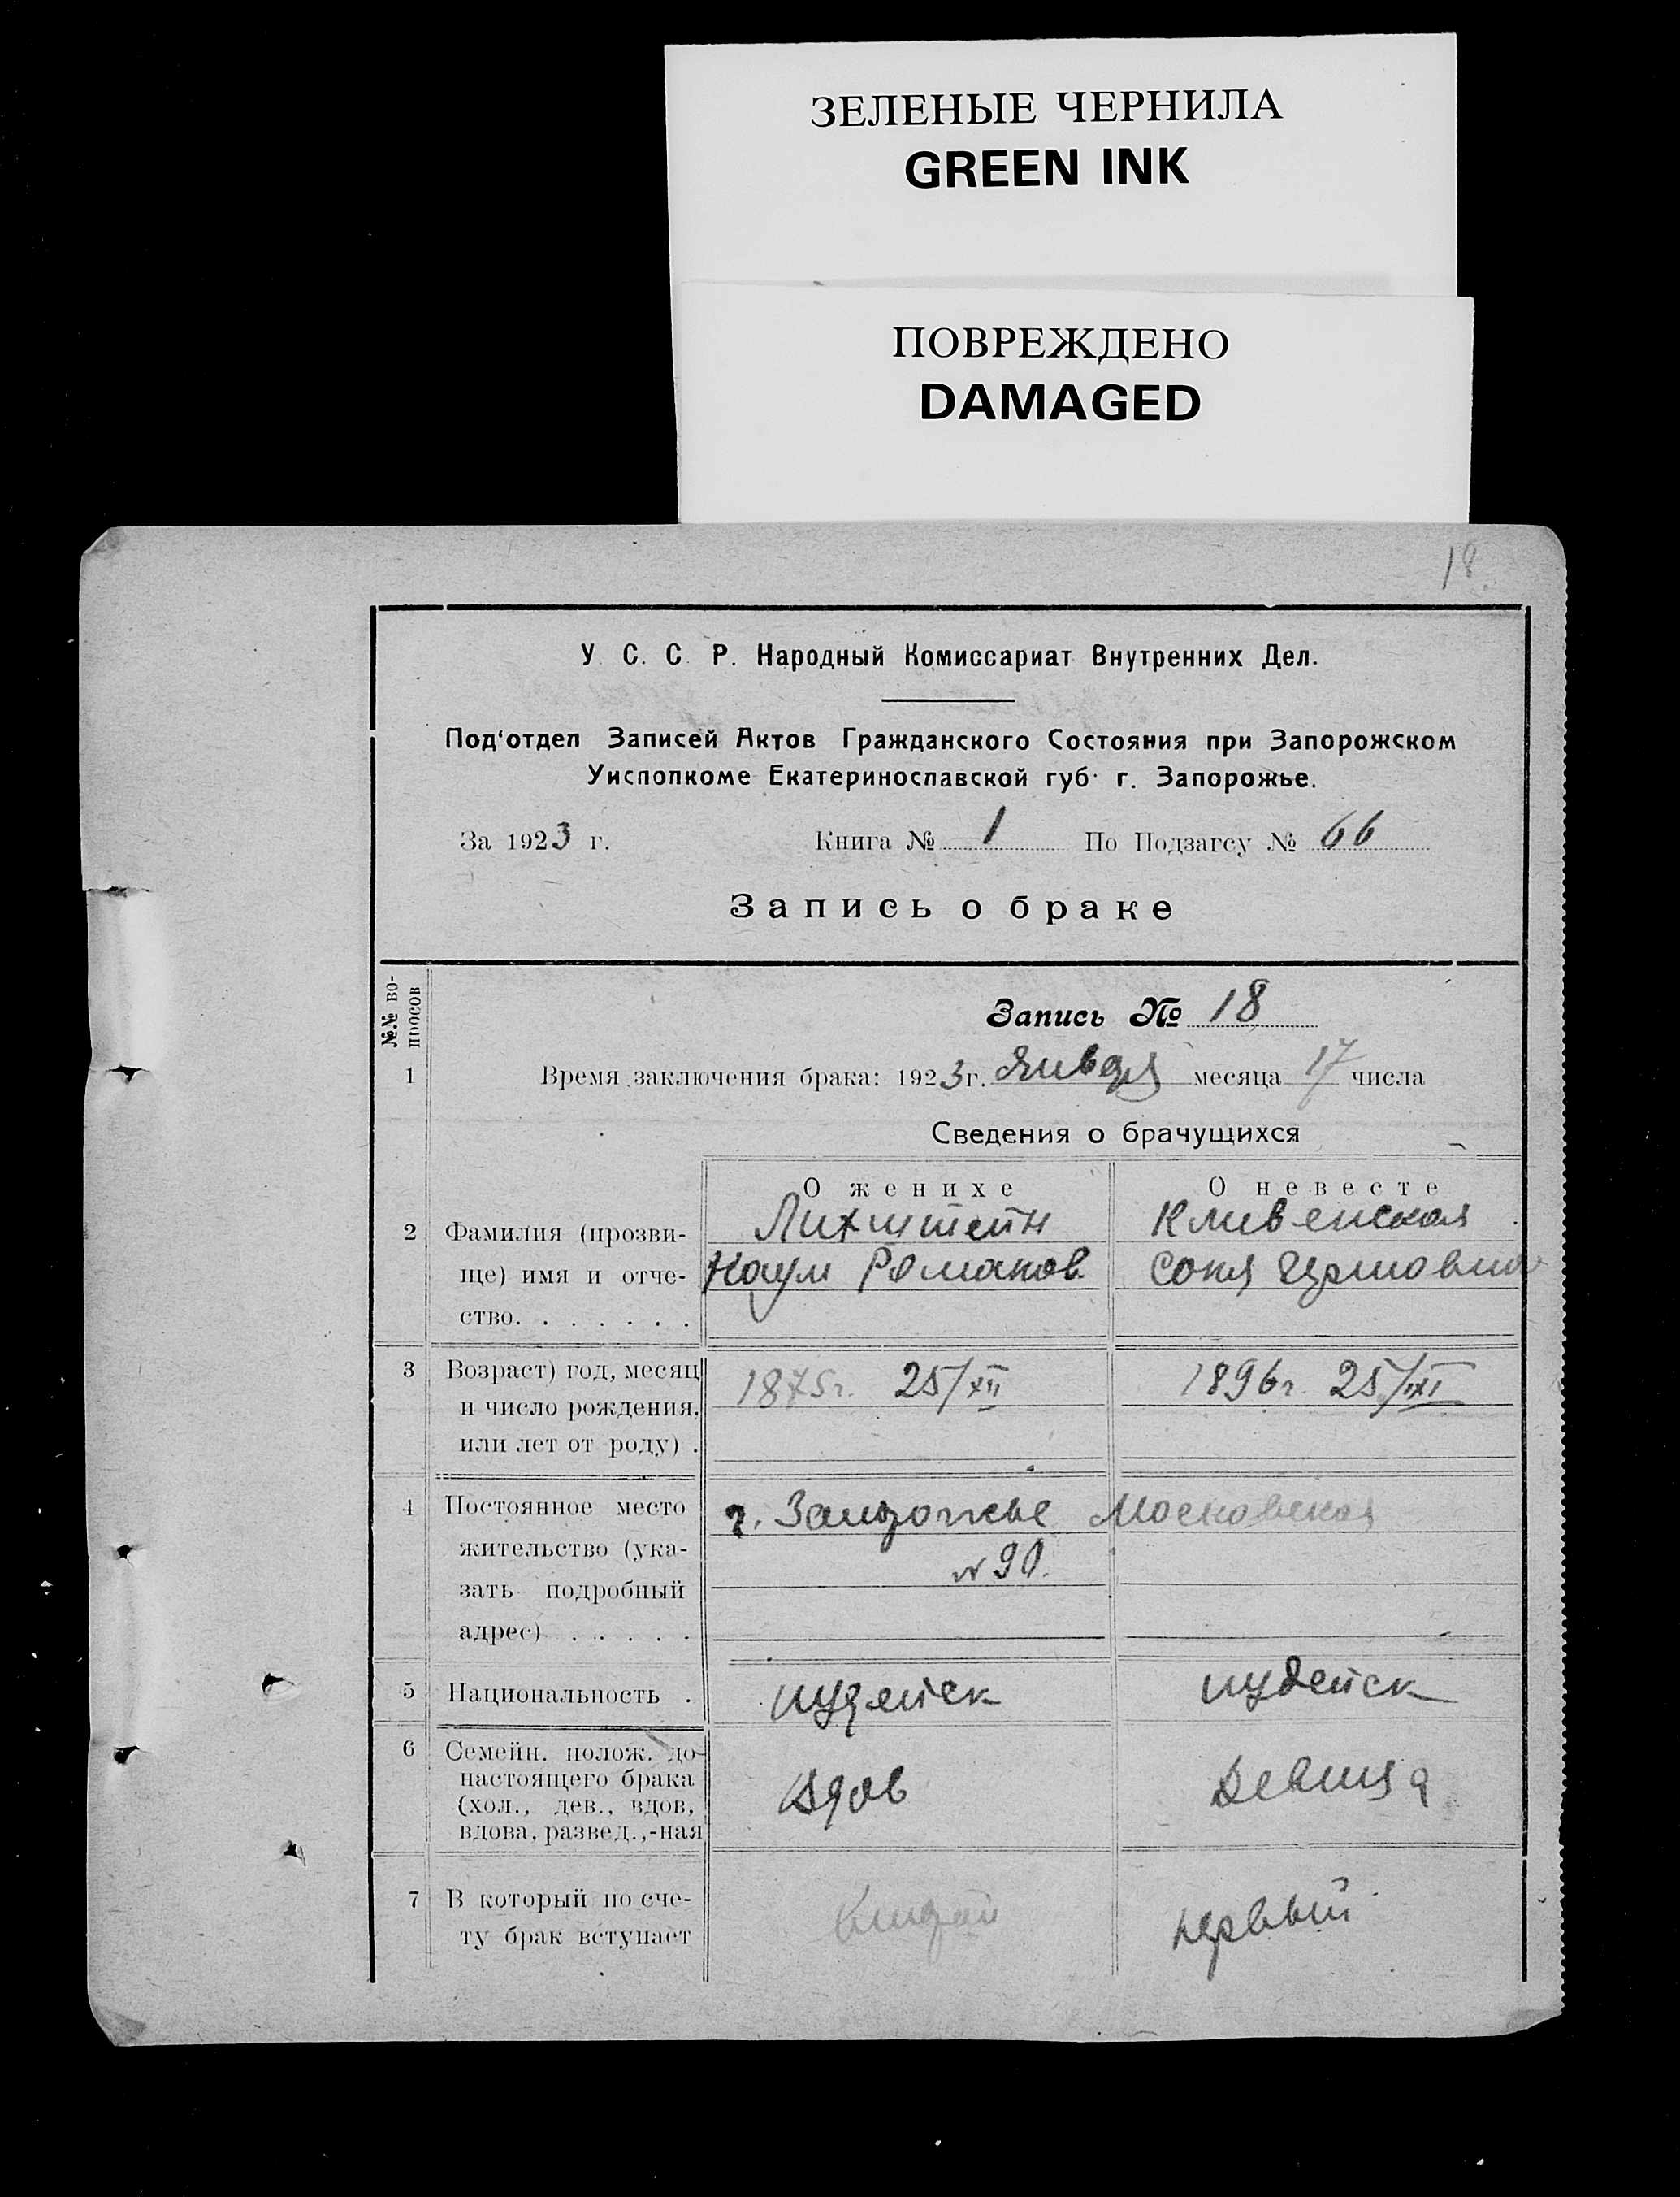 ЗЕЛЕНЫЕ ЧЕРНИЛА
GREEN INK
ПОВРЕЖДЕНО
DAMAGED
18.
У. С. С. Р. Народный Комиссариат Внутренних Дел.
Под‘отдел Записей Актов Гражданского Состояния при Запорожском
Уисполкоме Екатеринославской губ. г. Запорожье.
За 1923 г. Книга № 1 По Подзагсу № 66
Запись о браке
№№ во-
просов
Запись № 18
1 Время заключения брака: 1923 г. Января месяца 17 числа
Сведения о брачущихся
О женихе О невесте
2 Фамилия (прозви- Лихтштейн Кливенская
ще) имя и отче- Наум Романов. Соня
ство. . . . . . .
3 Возраст) год, месяц 1875 г. 25/XII 1896 г. 25/XI
и число рождения,
или лет от роду) .
4 Постоянное место г. Запорожье Московская
жительство (ука- № 90.
зать подробный
адрес) . . . . .
5 Национальность . иудейск иудейск
6 Семейн. полож. до
настоящего брака Вдов Девица
(хол., дев., вдов,
вдова, развед.,-ная
7 В который по сче- второй первый
ту брак вступает